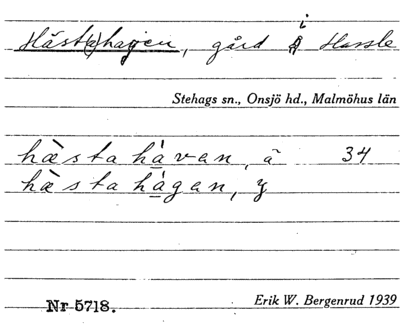 Häst(e)hagen, gård i Hassle
Stehags sn., Onsjö hd., Malmöhus län
hæ̀sta hàvan, ä 34
hæ̀sta hàgan, y
Nr 5718.
Erik W. Bergenrud 1939